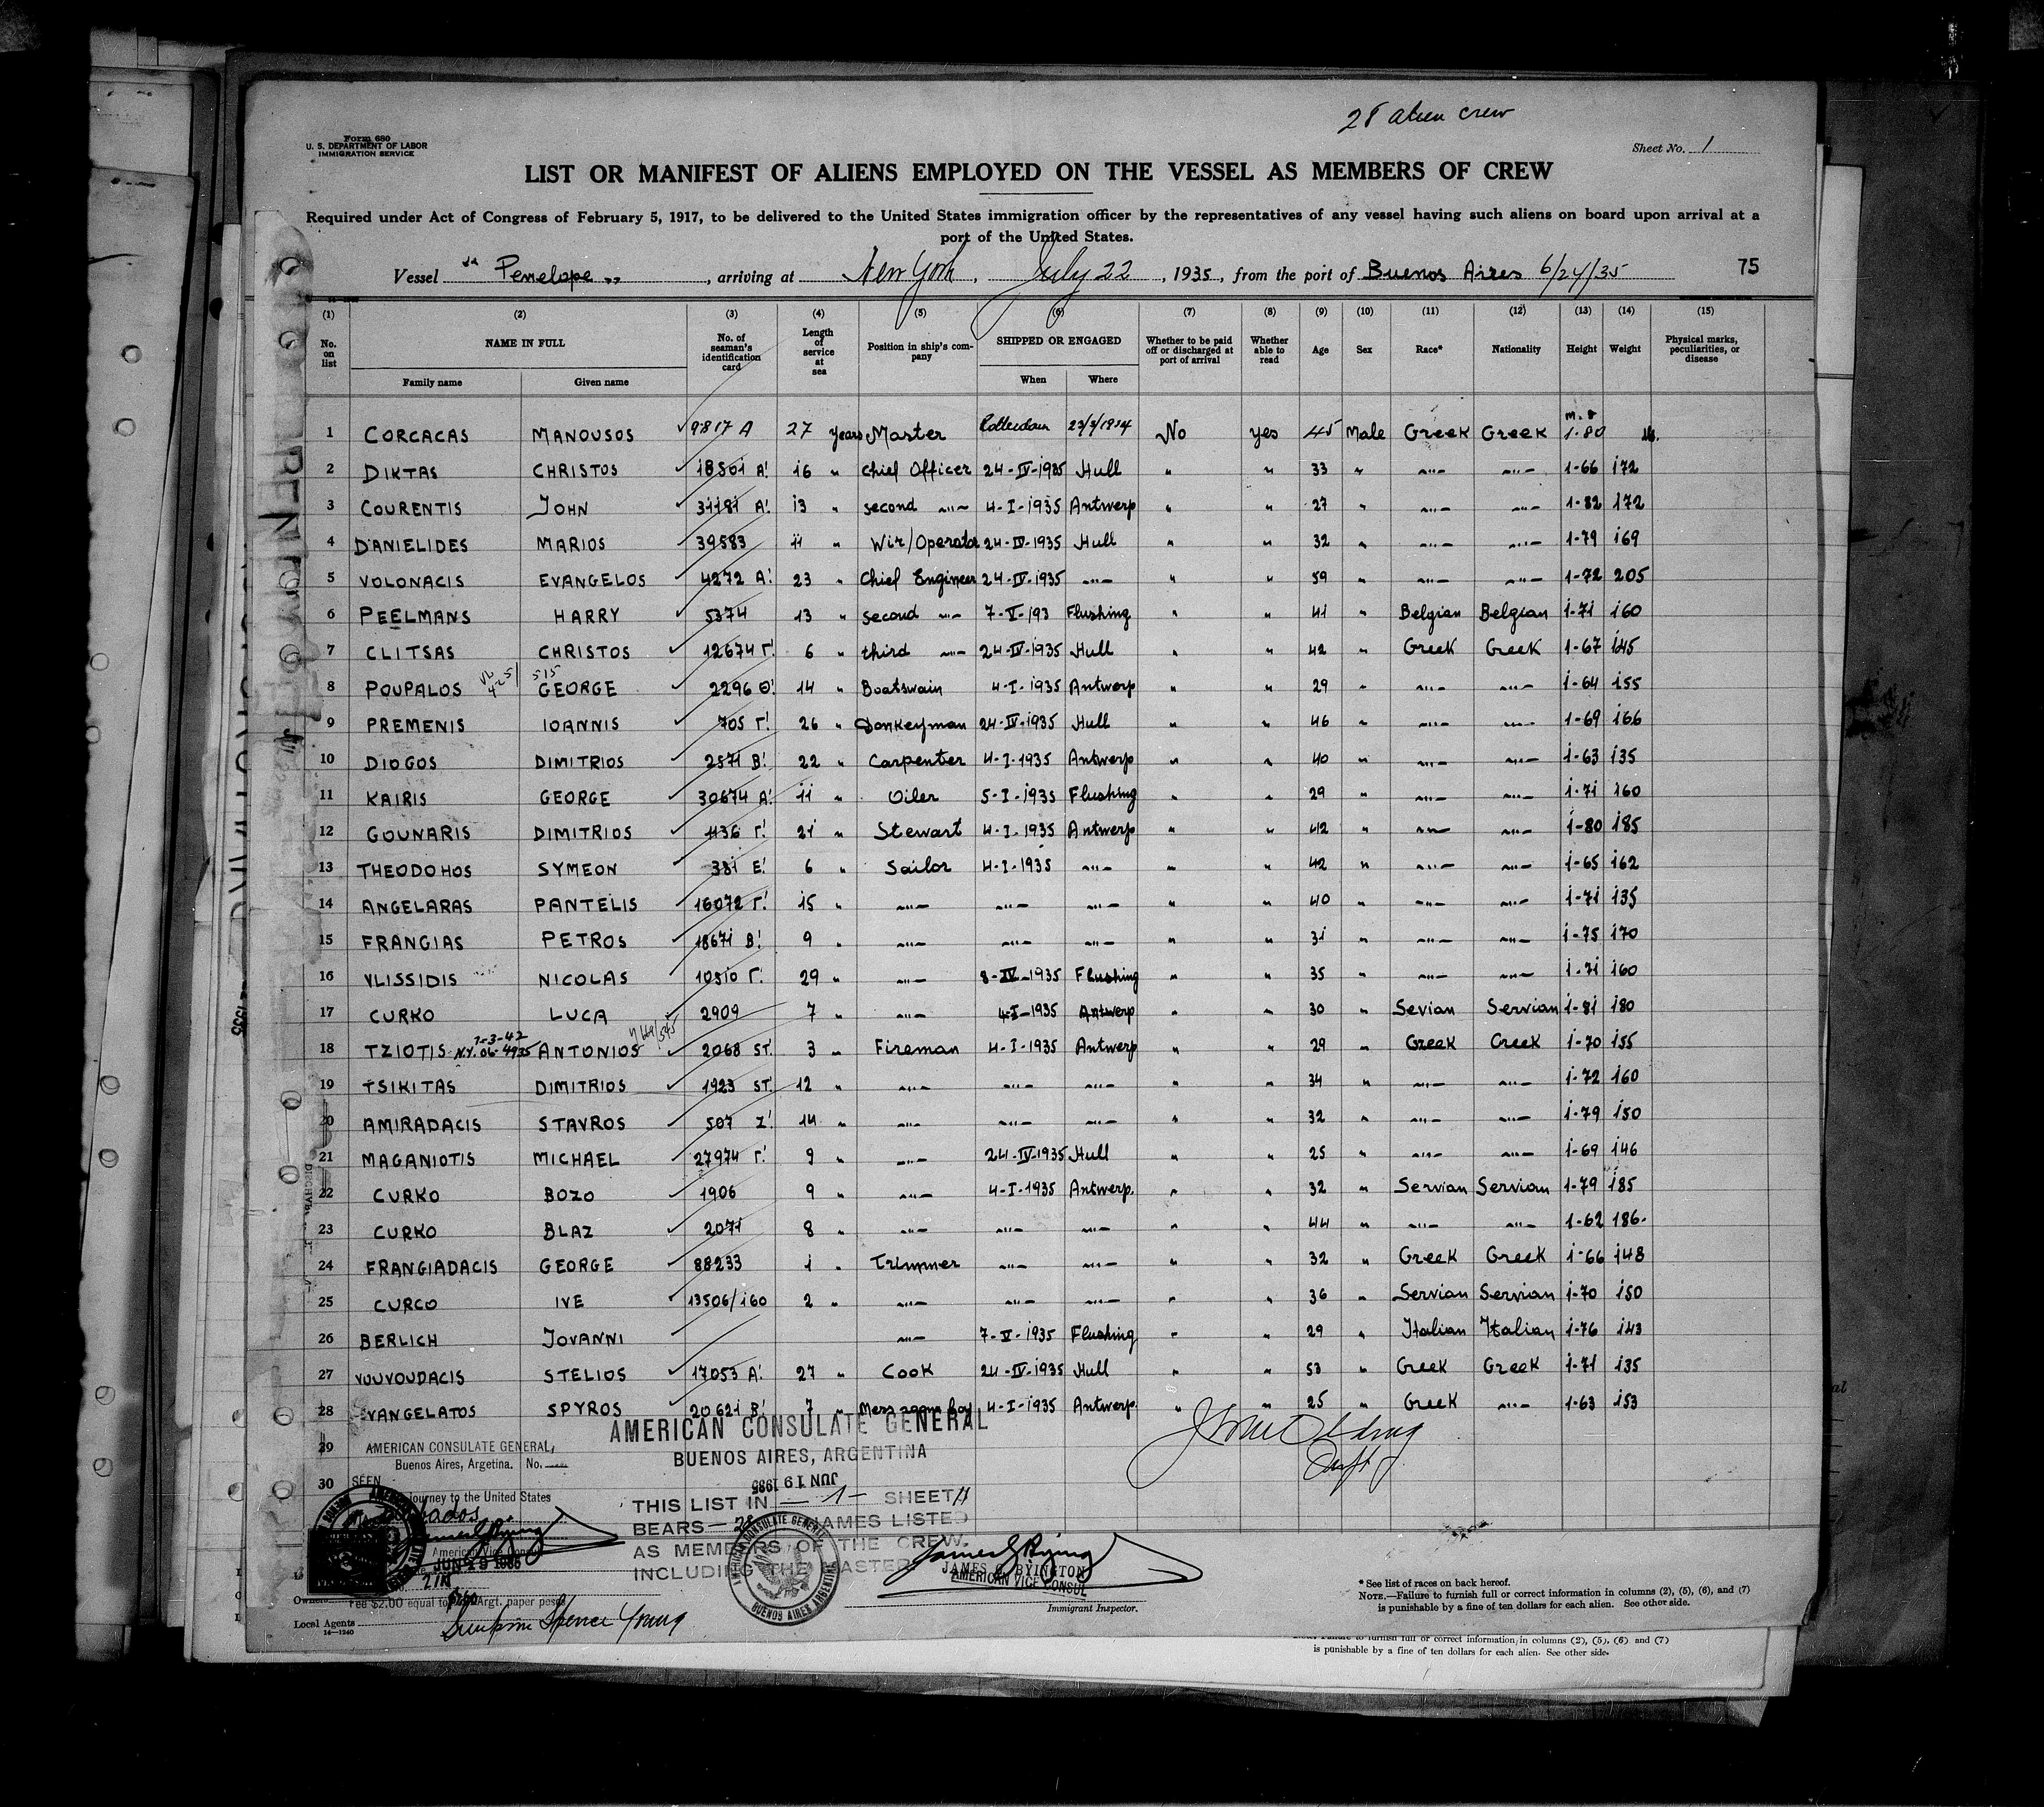 28 alien crew
Form 680
U. S. DEPARTMENT OF LABOR
IMMIGRATION SERVICE
Sheet No. 1
LIST OR MANIFEST OF ALIENS EMPLOYED ON THE VESSEL AS MEMBERS OF CREW
Required under Act of Congress of February 5, 1917, to be delivered to the United States immigration officer by the representatives of any vessel having such aliens on board upon arrival at a
port of the United States.
Vessel "Penelope", arriving at New York, July 22, 1935, from the port of Buenos Aires 6/24/35 75
(1) (2) (3) (4) (5) (6) (7) (8) (9) (10) (11) (12) (13) (14) (15)
No. on list NAME IN FULL No. of seaman's identification card Length of service at sea Position in ship's company SHIPPED OR ENGAGED Whether to be paid off or discharged at port of arrival Whether able to read Age Sex Race* Nationality Height Weight Physical marks, peculiarities, or disease
Family name Given name When Where
1 CORCACAS MANOUSOS 9817 A 27 years Master Rotterdam 23/3/1934 No yes 45 Male Greek Greek 1-80
2 DIKTAS CHRISTOS 18501 A! 16 " Chief Officer 24-IV-1935 Hull " " 33 " -"- -"- 1-66 172
3 COURENTIS JOHN 31181 A! 13 " second -"- 4-I-1935 Antwerp " " 27 " -"- -"- 1-82 172
4 DANIELIDES MARIOS 39583 11 " Wir/Operator 24-IV-1935 Hull " " 32 " -"- -"- 1-79 169
5 VOLONACIS EVANGELOS 4272 A! 23 " Chief Engineer 24-IV-1935 -"- " " 59 " -"- -"- 1-72 205
6 PEELMANS HARRY 5374 13 " second -"- 7-V-193 Flushing " " 41 " Belgian Belgian 1-71 160
7 CLITSAS CHRISTOS 12674 Γ! 6 " third -"- 24-IV-1935 Hull " " 42 " Greek Greek 1-67 145
8 POUPALOS GEORGE 2296 Θ! 14 " Boatswain 4-I-1935 Antwerp " " 29 " -"- -"- 1-64 155
9 PREMENIS IOANNIS 705 Γ! 26 " Donkeyman 24-IV-1935 Hull " " 46 " -"- -"- 1-69 166
10 DIOGOS DIMITRIOS 2571 B! 22 " Carpenter 4-I-1935 Antwerp " " 40 " -"- -"- 1-63 135
11 KAIRIS GEORGE 30674 A! 11 " Oiler 5-I-1935 Flushing " " 29 " -"- -"- 1-71 160
12 GOUNARIS DIMITRIOS 1136 Γ! 21 " Stewart 4-I-1935 Antwerp " " 42 " -"- -"- 1-80 185
13 THEODOHOS SYMEON 381 E! 6 " Sailor 4-I-1935 -"- " " 42 " -"- -"- 1-65 162
14 ANGELARAS PANTELIS 16072 Γ! 15 " -"- -"- -"- " " 40 " -"- -"- 1-71 135
15 FRANGIAS PETROS 18671 B! 9 " -"- -"- -"- " " 31 " -"- -"- 1-75 170
16 VLISSIDIS NICOLAS 10510 Γ! 29 " -"- 8-IV-1935 Flushing " " 35 " -"- -"- 1-71 160
17 CURKO LUCA 2909 7 " -"- 4-I-1935 Antwerp " " 30 " Sevian Servian 1-81 180
18 TZIOTIS ANTONIOS 2068 ST! 3 " Fireman 4-I-1935 Antwerp " " 29 " Greek Greek 1-70 155
19 TSIKITAS DIMITRIOS 1923 ST! 12 " -"- -"- -"- " " 34 " -"- -"- 1-72 160
20 AMIRADACIS STAVROS 507 Z! 14 " -"- -"- -"- " " 32 " -"- -"- 1-79 150
21 MAGANIOTIS MICHAEL 27974 Γ! 9 " -"- 24-IV-1935 Hull " " 25 " -"- -"- 1-69 146
22 CURKO BOZO 1906 9 " -"- 4-I-1935 Antwerp. " " 32 " Servian Servian 1-79 185
23 CURKO BLAZ 2071 8 " -"- -"- -"- " " 44 " -"- -"- 1-62 186.
24 FRANGIADACIS GEORGE 88233 1 " Trimmer -"- -"- " " 32 " Greek Greek 1-66 148
25 CURCO IVE 13506/160 2 " -"- -"- -"- " " 36 " Servian Servian 1-70 150
26 BERLICH JOVANNI -"- 7-V-1935 Flushing " " 29 " Italian Italian 1-76 143
27 VOUVOUDACIS STELIOS 17053 A! 27 " Cook 24-IV-1935 Hull " " 53 " Greek Greek 1-71 135
28 EVANGELATOS SPYROS 20621 B! 7 " Mess room boy 4-I-1935 Antwerp " " 25 " Greek -"- 1-63 153
29
30
AMERICAN CONSULATE GENERAL,
Buenos Aires, Argetina. No.
SEEN
Journey to the United States
American Vice Consul
JUN 19 1935
Fee $2.00 equal to Argt. paper pesos
AMERICAN CONSULATE GENERAL
BUENOS AIRES, ARGENTINA
JUN 19 1935
THIS LIST IN -1- SHEET
BEARS -28 NAMES LISTED
AS MEMBERS OF THE CREW.
INCLUDING THE MASTER
AMERICAN CONSULATE GENERAL BUENOS AIRES ARGENTINA
James G Byington
JAMES G. BYINGTON
AMERICAN VICE CONSUL
Immigrant Inspector.
Owners
Local Agents
14—1240
*See list of races on back hereof.
NOTE.—Failure to furnish full or correct information in columns (2), (5), (6), and (7)
is punishable by a fine of ten dollars for each alien. See other side.
furnish full or correct information in columns (2), (5), (6) and (7)
is punishable by a fine of ten dollars for each alien. See other side.